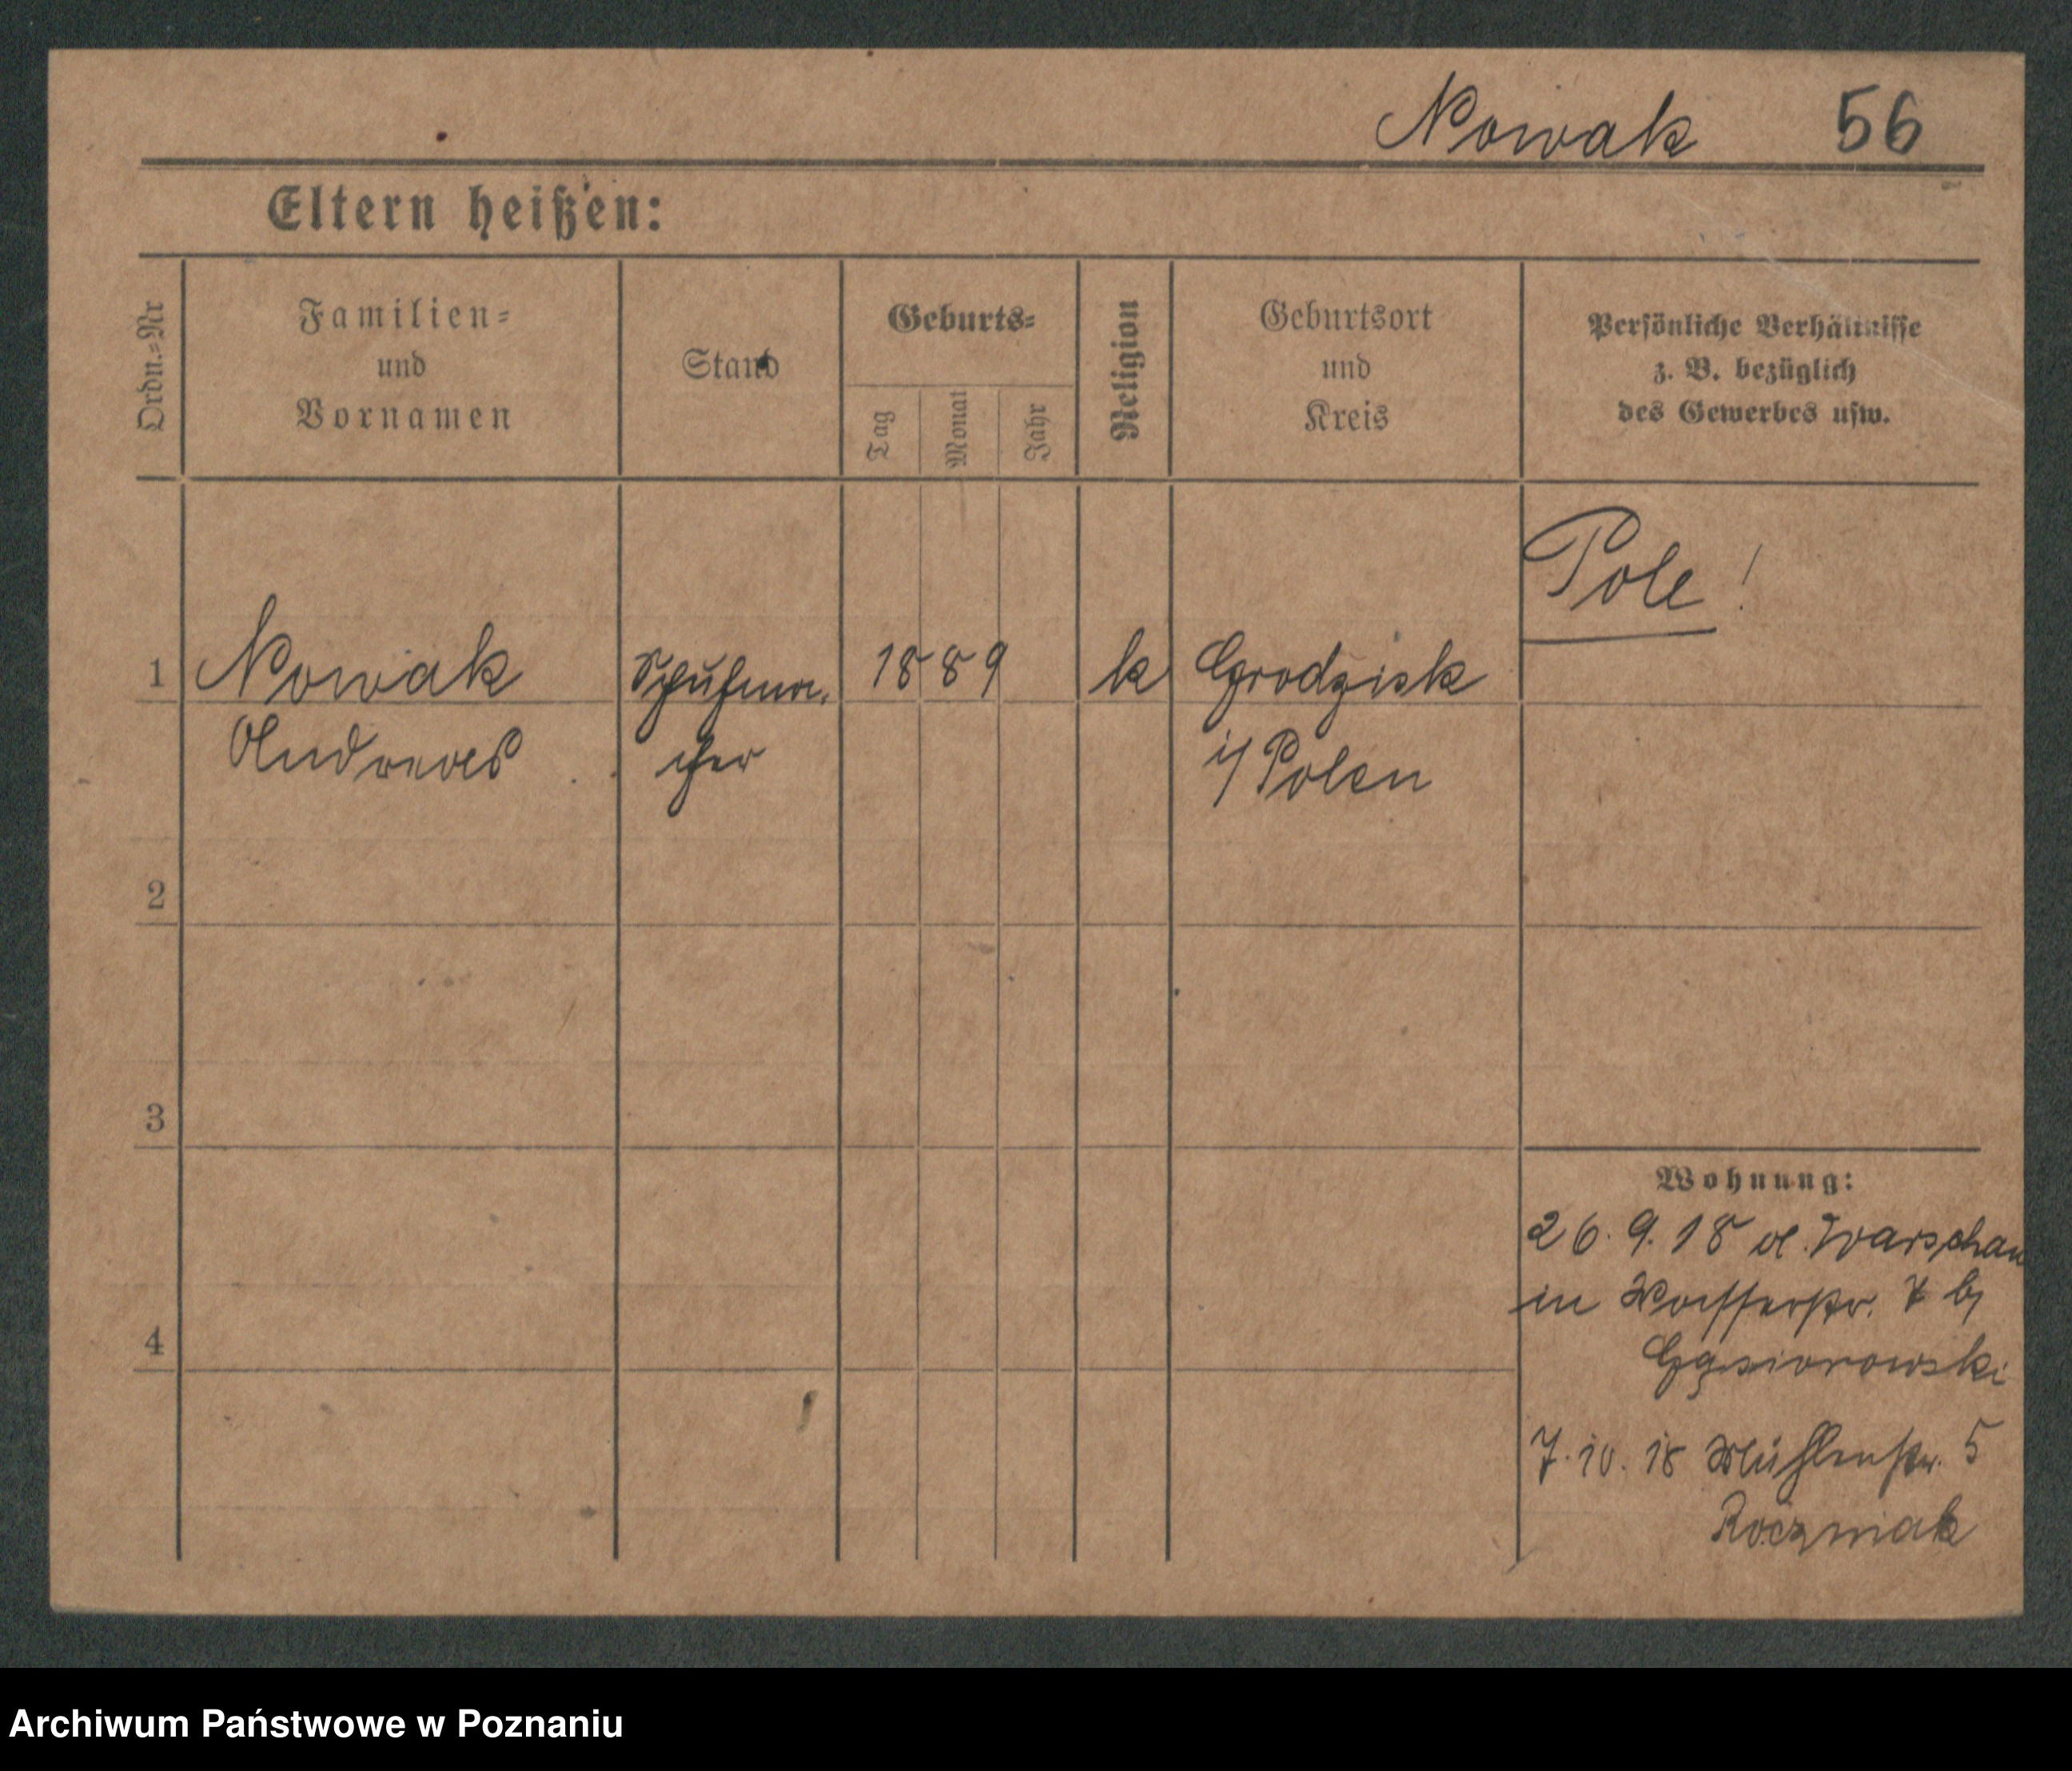 Nowak 56
Eltern heißen:
Ordn.=Nr
Familien=
und
Vornamen
Stand
Geburts=
Tag
Monat
Jahr
Religion
Geburtsort
und
Kreis
Persönliche Verhältnisse
z. B. bezüglich
des Gewerbes usw.
Pole!
1 Nowak Schuhma- 1889 k Grodzisk
Andreas cher i/Polen
2
3
4
Wohnung:
26.9.18 v. Warschau
in Wasserstr. 7 b/
Gąsiorowski
7.10.18 Mühlenstr. 5
Roczniak
Archiwum Państwowe w Poznaniu